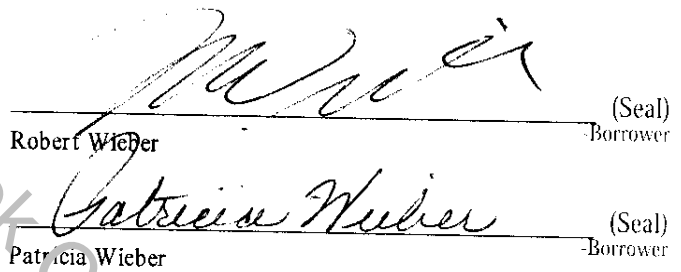 (Seal)
Robert Wieber -Borrower
Patricia Wieber (Seal)
Patricia Wieber -Borrower